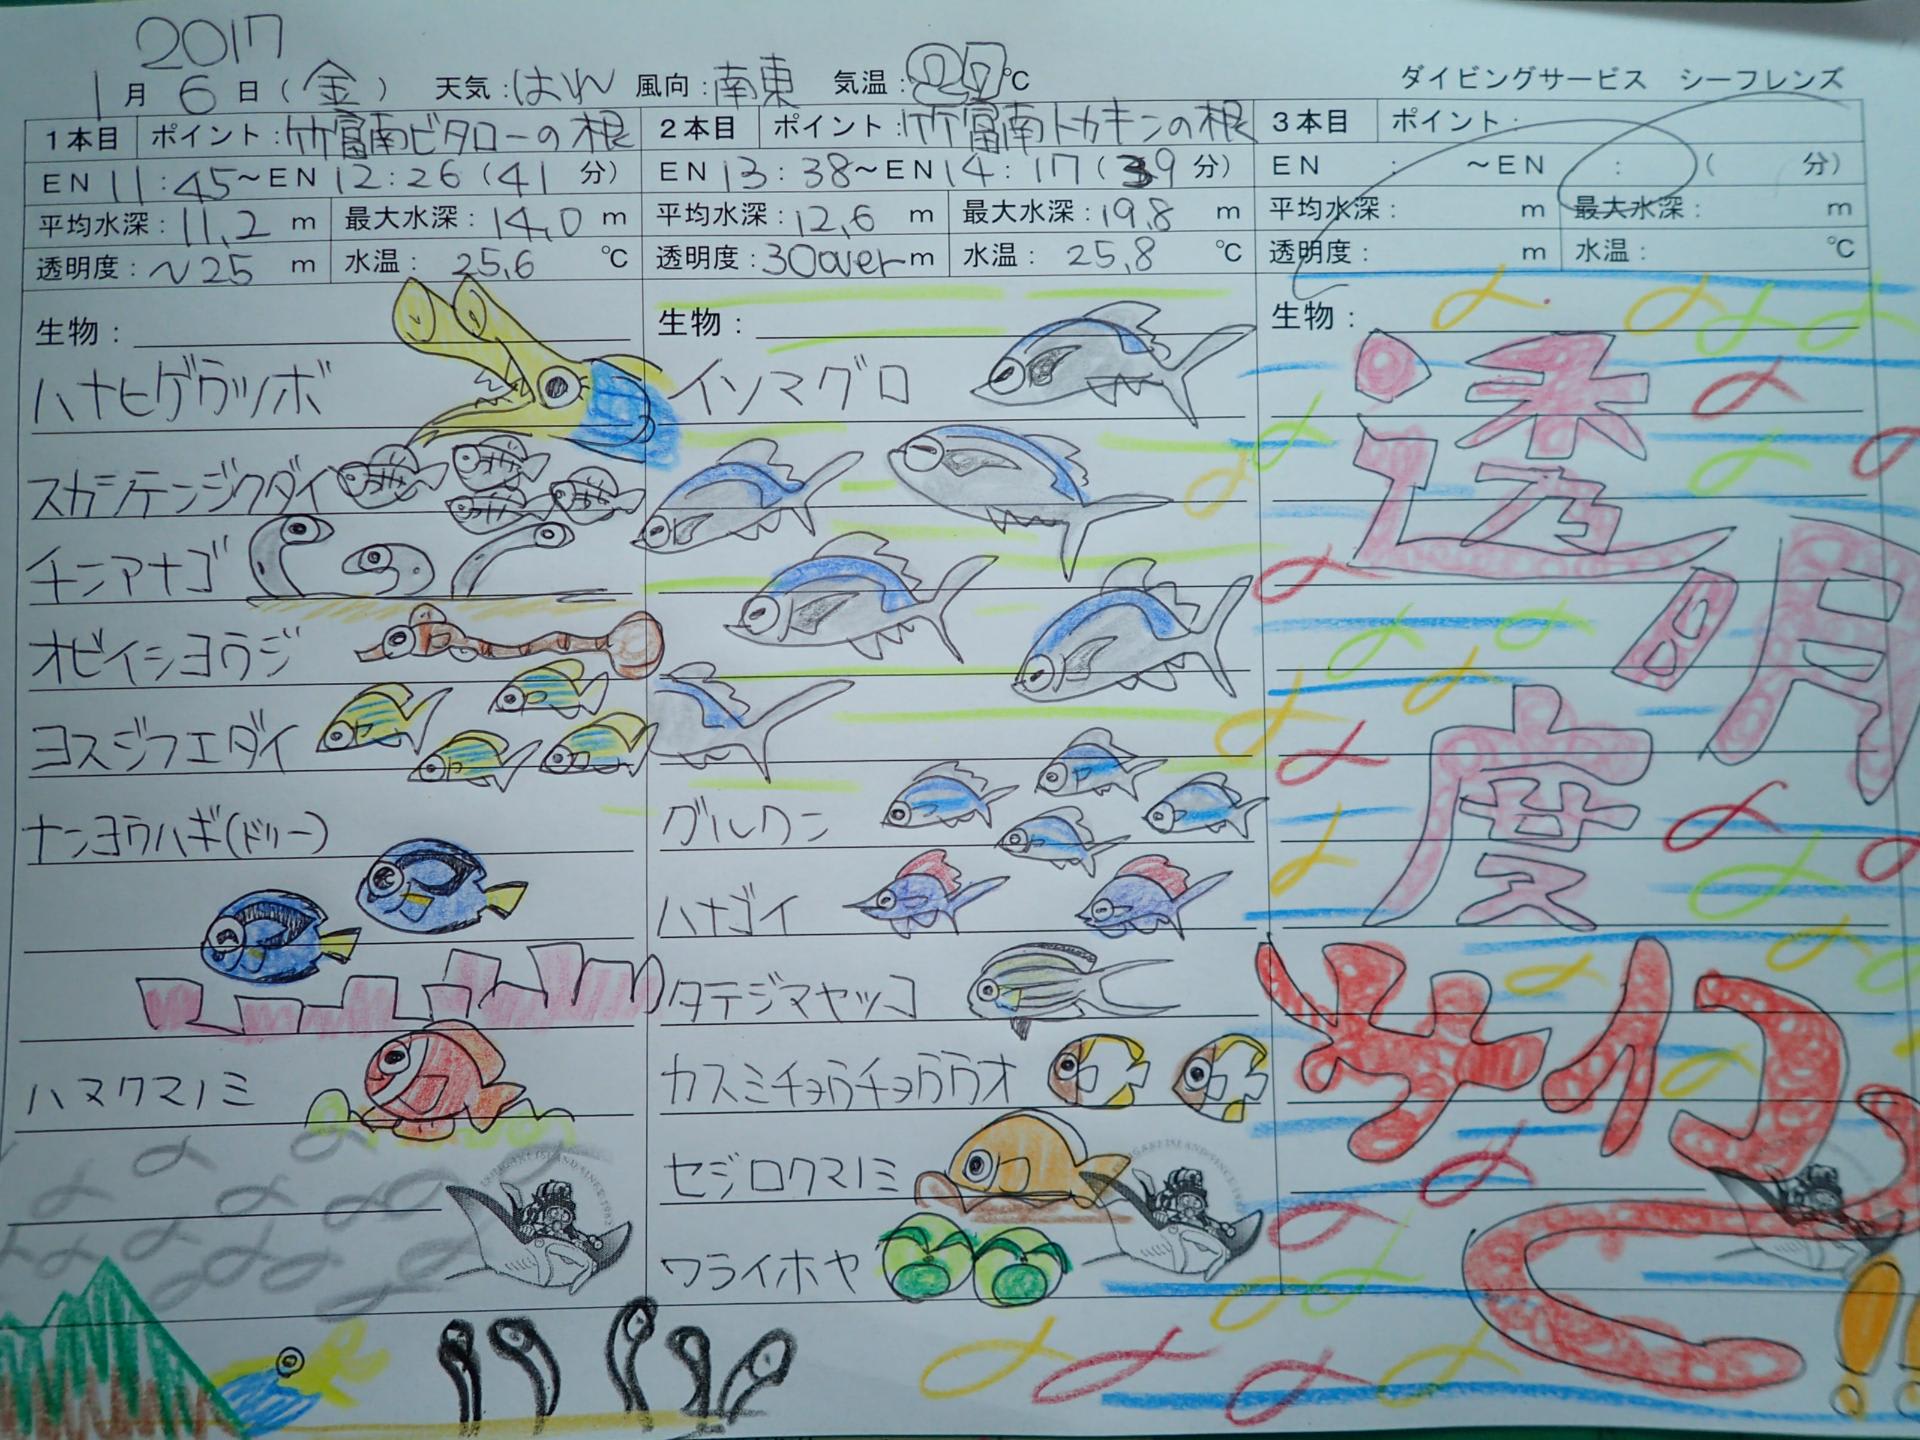 2017
1月6日(金) 天気:はれ 風向:南東 気温:27℃ ダイビングサービス シーフレンズ
1本目 ポイント:竹富南ビタローの根
EN 11:45~EN 12:26(41分)
平均水深:11.2m 最大水深:14.0m
透明度:~25m 水温:25.6℃
生物:
ハナヒゲウツボ
スカシテンジクダイ
チンアナゴ
オビイシヨウジ
ヨスジフエダイ
ナンヨウハギ(ドリー)
ハマクマノミ
2本目 ポイント:竹富南トカキンの根
EN 13:38~EN 14:17(39分)
平均水深:12.6m 最大水深:19.8m
透明度:30overm 水温:25.8℃
生物:
イソマグロ
グルクン
ハナゴイ
タテジマヤッコ
カスミチョウチョウウオ
セジロクマノミ
ワライホヤ
3本目 ポイント:
EN : ~EN : ( 分)
平均水深: m 最大水深: m
透明度: m 水温: ℃
生物:
透明度
サイコゥ
し!!